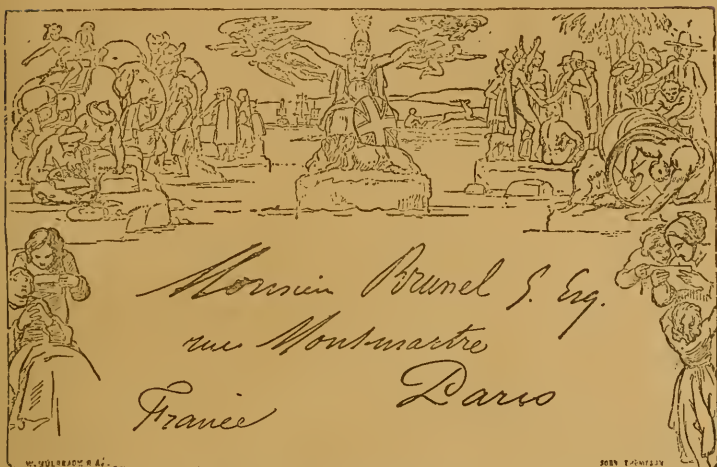 Monsieur Brunel G. Esq.
rue Montmartre
Paris
France
W. MULREADY R.A.
JOHN THOMPSON